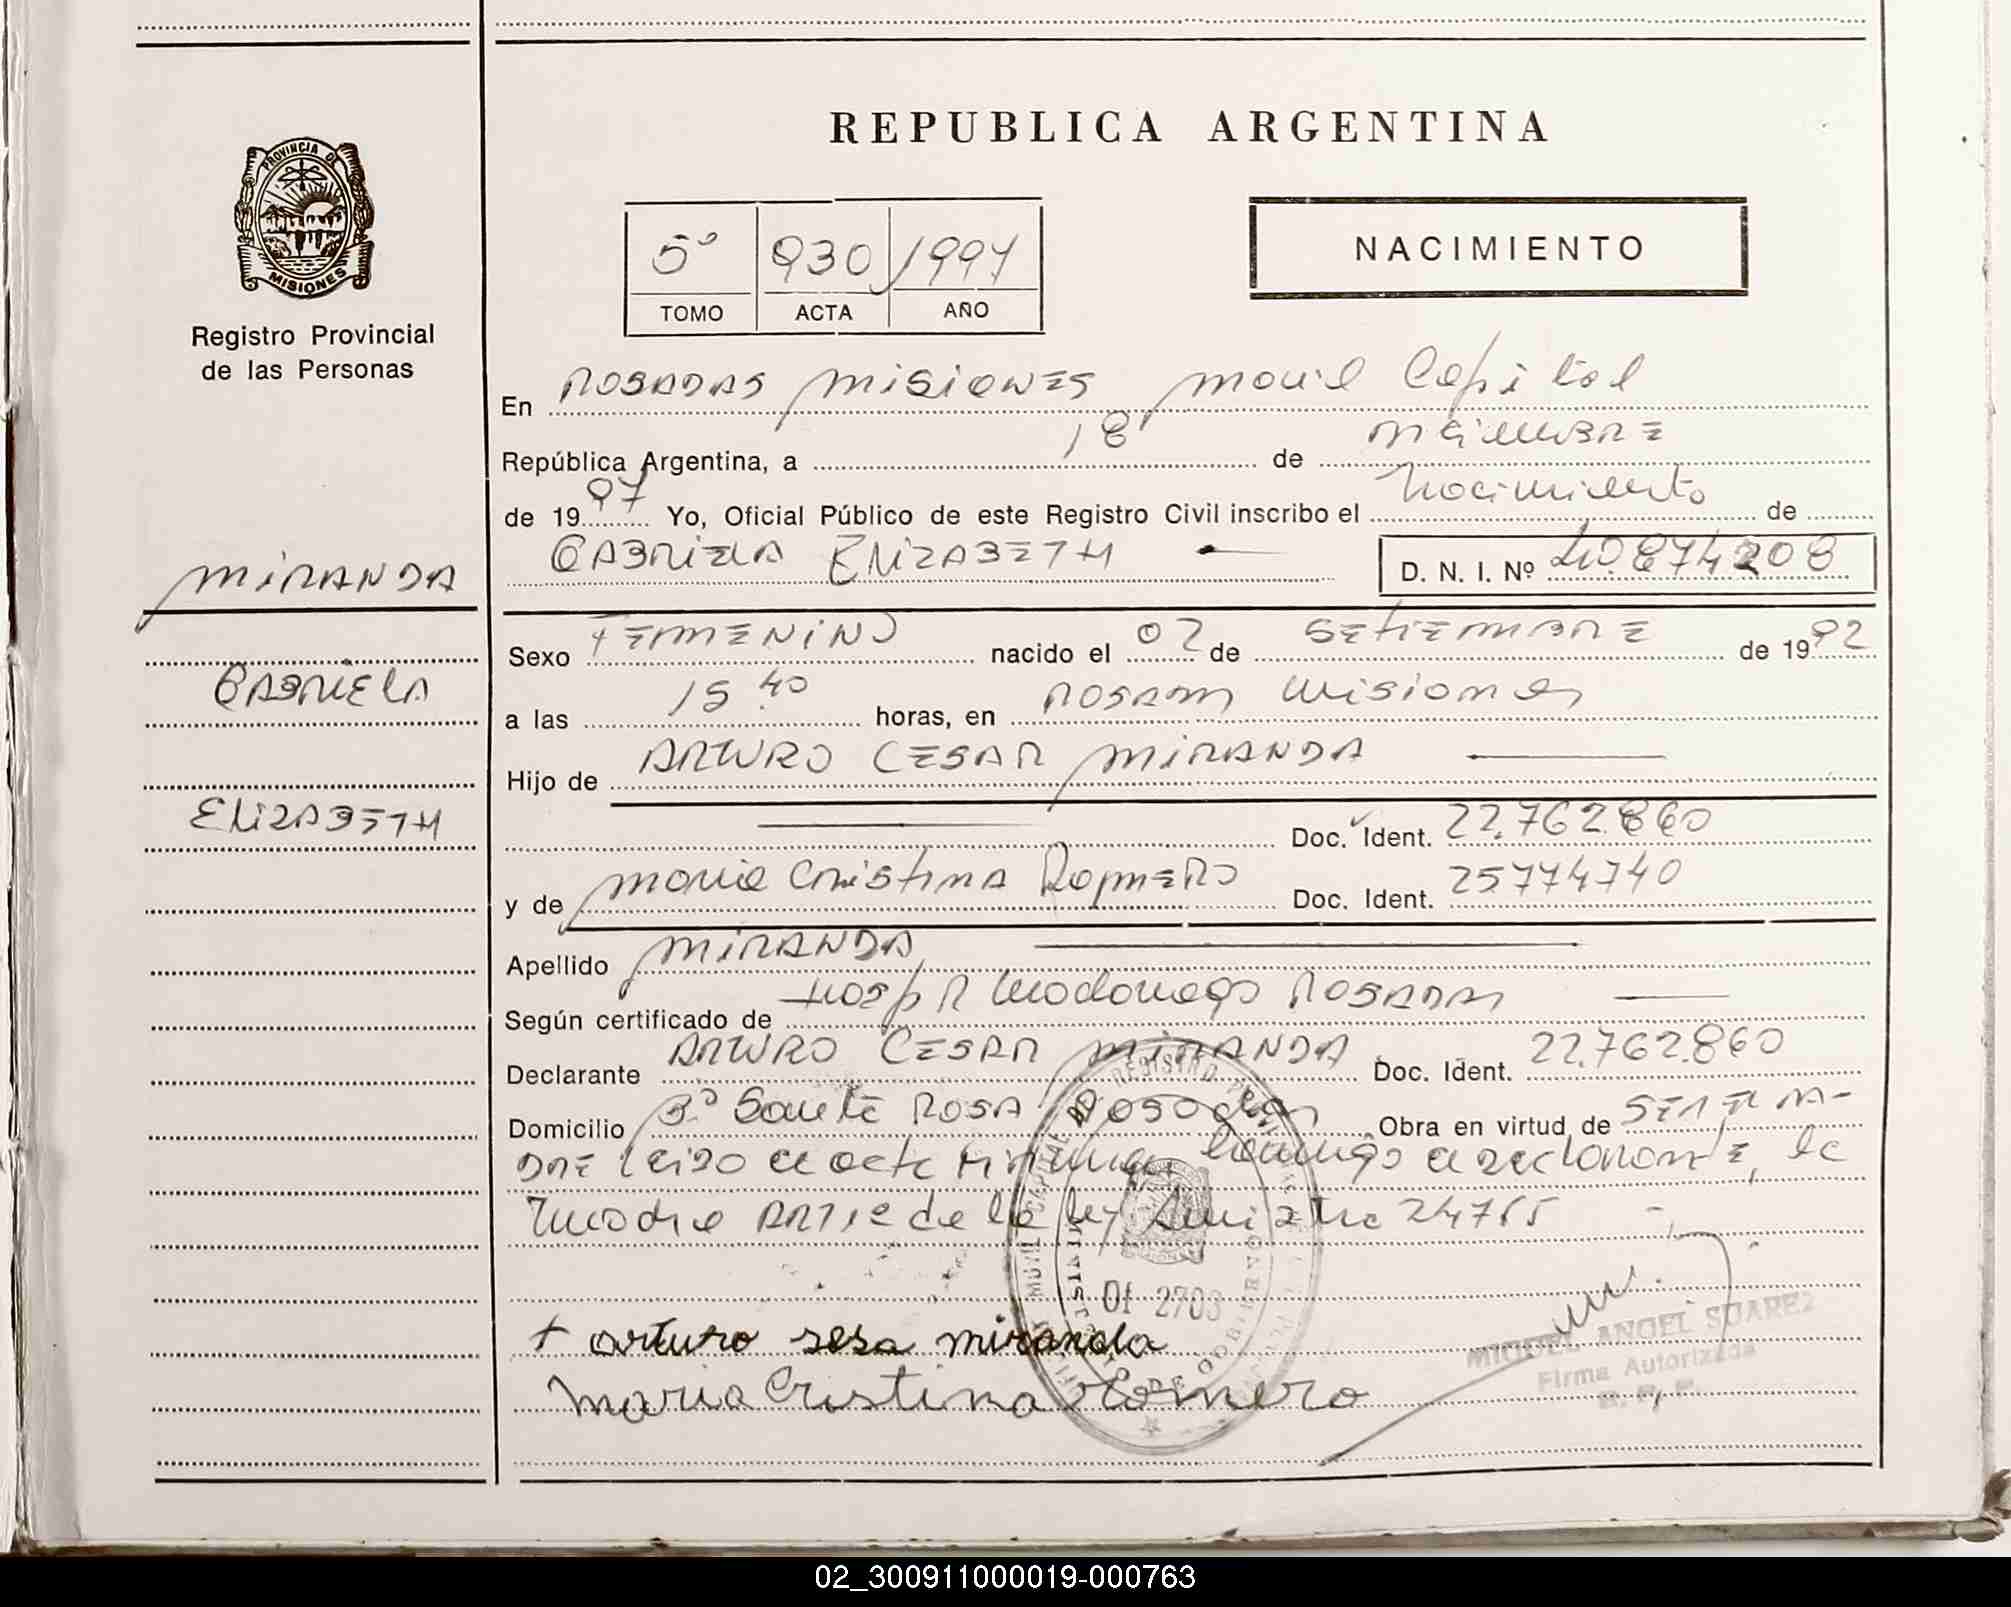 REPUBLICA ARGENTINA
PROVINCIA DE
MISIONES
Registro Provincial
de las Personas
5º 930 1997
TOMO ACTA AÑO
NACIMIENTO
En POSADAS MISIONES movil Capital
República Argentina, a 18 de
de 1997 Yo, Oficial Público de este Registro Civil inscribo el Nacimiento de
GABRIELA ELIZABETH D. N. I. Nº 40.874208
MIRANDA
GABRIELA
ELIZABETH
Sexo FEMENINO nacido el 02 de SETIEMBRE de 1992
a las 15.40 horas, en POSADAS Misiones
Hijo de ARTURO CESAR MIRANDA
Doc. Ident. 22.762.860
y de Maria Cristina Romero Doc. Ident. 25774740
Apellido MIRANDA
Según certificado de Hosp R Madariaga POSADAS
Declarante ARTURO CESAR MIRANDA Doc. Ident. 22.762.860
Domicilio Bº Santa ROSA Posadas Obra en virtud de SER EL PA-
DRE Leido el acta firman conmigo el declarante, la
madre ART 12 de la ley 24755
Of 2703
+ arturo sesa miranda
Maria Cristina Romero
MIGUEL ANGEL SUAREZ
Firma Autorizada
R. P. P.
02_300911000019-000763